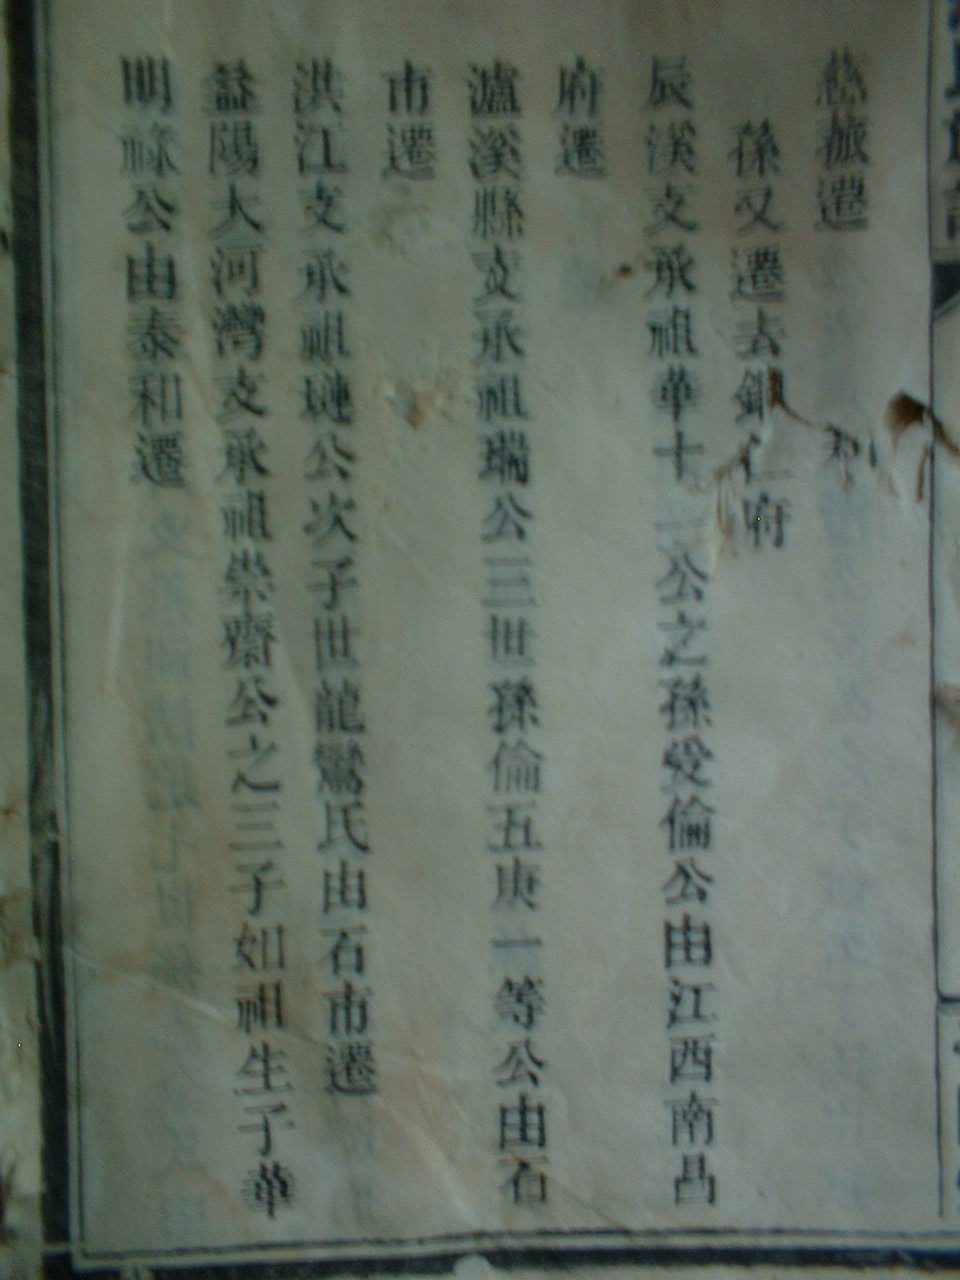 遷
孫又遷去銅仁府
辰溪支承祖華十二公之孫受倫公由江西南昌
府遷
瀘溪縣支承祖瑞公三世孫倫五庚一等公由石
市遷
洪江支承祖璉公次子世龍鸞氏由石市遷
益陽大河灣支承祖崇齋公之三子如祖生子華
明祿公由泰和遷